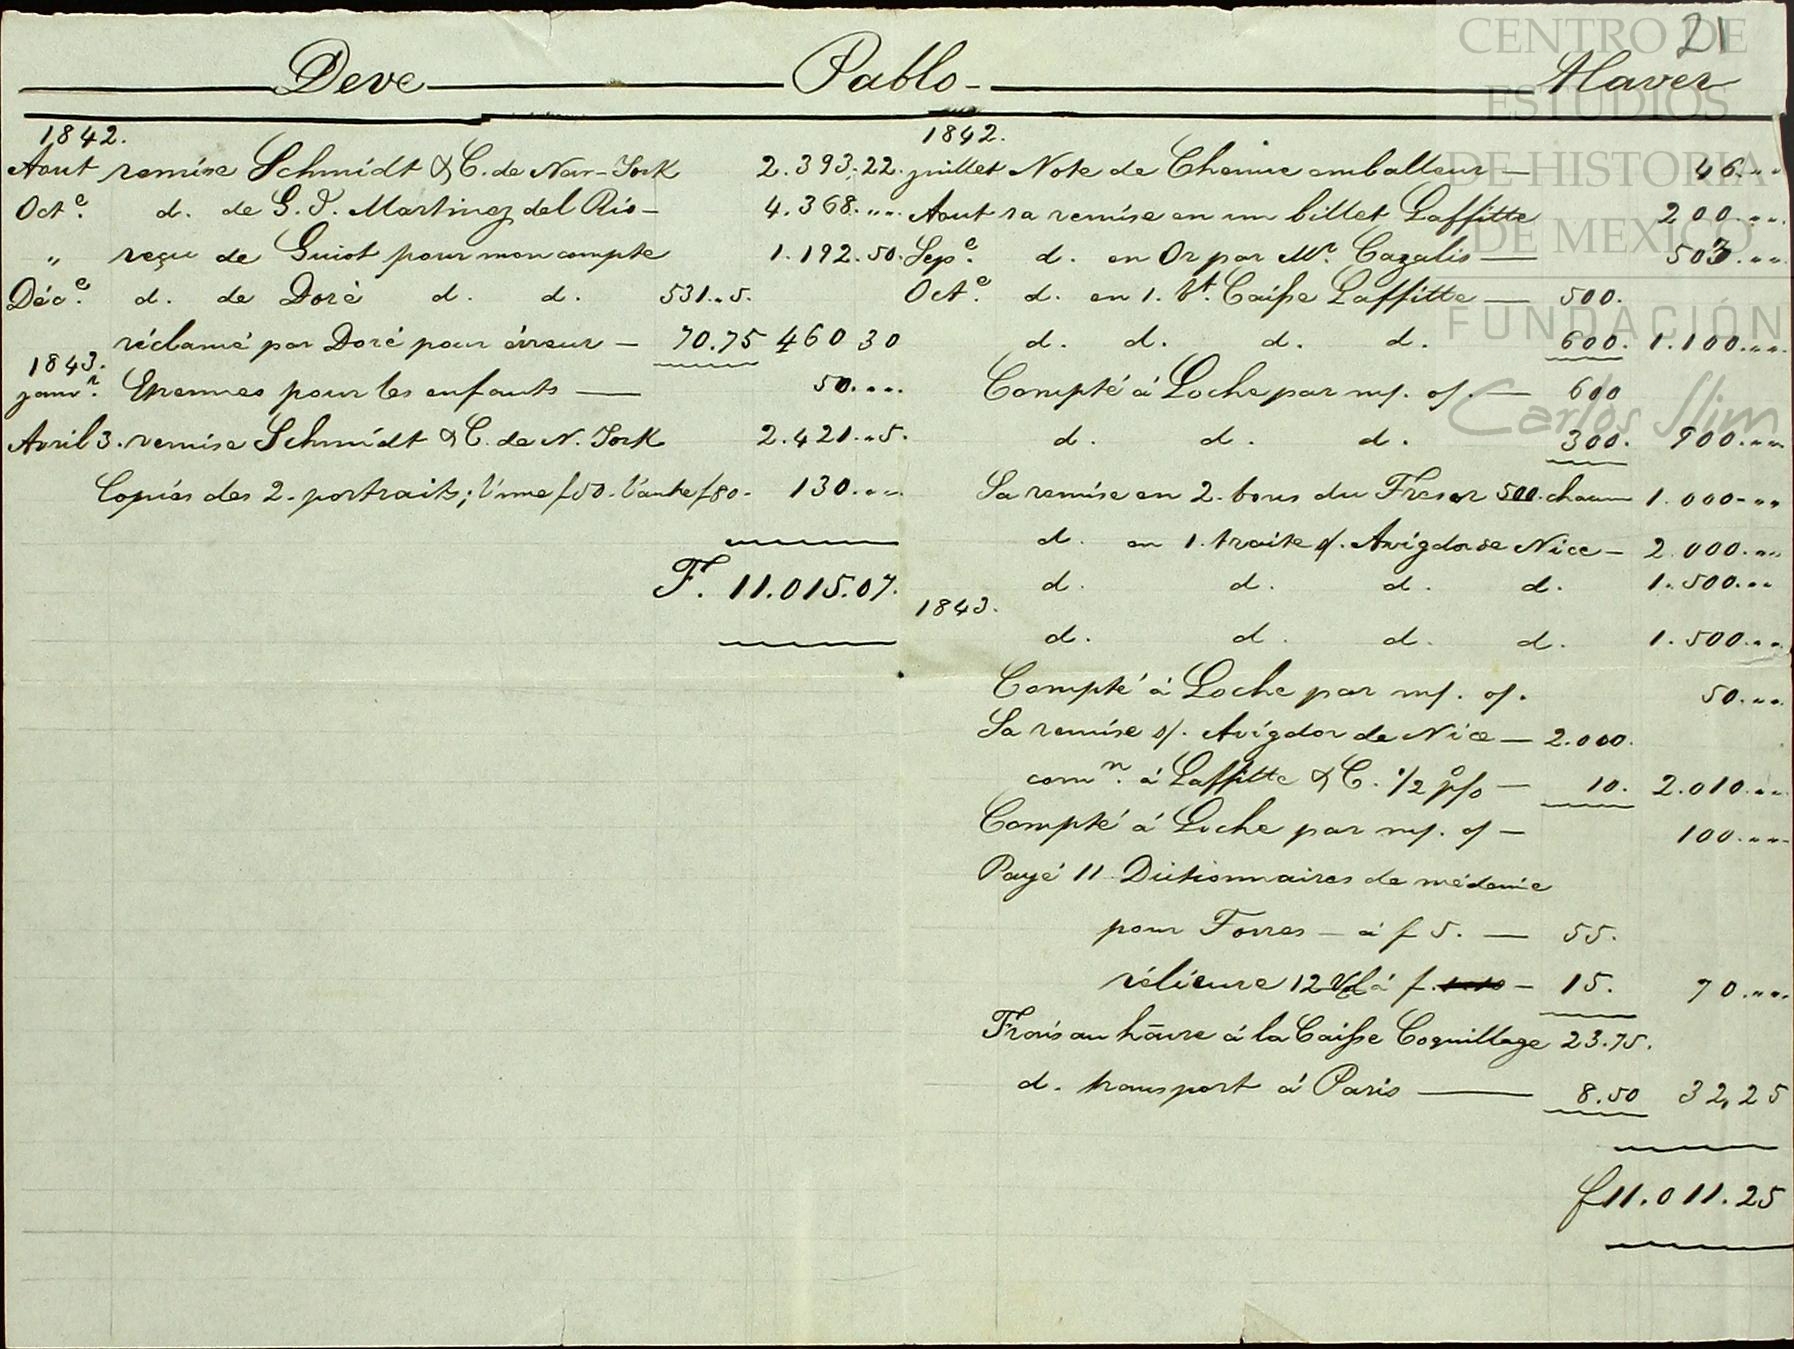 21
Deve Pablo Haver
1842.
Aout remise Schmidt & C. de New-York 2.393.22.
Octe. d. de G. J. Martinez del Rio 4.368."".
" reçu de Guiot pour mon compte 1.192.50.
Déce. d. de Doré d. d. 531."5.
réclamé par Doré pour érreur 70.75 460 30
1843.
janvr. Etrennes pour les enfants 50."".
Avril 3. remise Schmidt & C. de N. York 2.421."5.
Copies des 2. portraits; l'une f 50. l'autre f 80. 130."".
F. 11.015.07.
1842.
juillet Note de Chenue emballeur 46.""
Aout sa remise en un billet Laffitte 200.""
Sepe. d. en Or par Mr. Cazalis 503.""
Octe. d. en 1. bt. Caisse Laffitte 500.
d. d. d. d. 600. 1.100.""
Compté à Loche par m/. o/. 600
d. d. d. 300. 900.""
Sa remise en 2. bons du Tresor 500. chacun 1.000.""
d. en 1. traite s/. Avigdor de Nice 2.000.""
d. d. d. d. 1.500.""
1843.
d. d. d. d. 1.500.""
Compté à Loche par m/. o/. 50.""
Sa remise s/. Avigdor de Nice 2.000.
comn. à Laffitte & C. 1/2 p% 10. 2.010.""
Compté à Loche par m/. o/ 100.""
Payé 11 Dictionnaires de médecine
pour Torres à f 5. 55.
réliure 12 Vol à f. 15. 70.""
Frais au hâvre à la Caisse Coquillage 23.75.
d. transport à Paris 8.50 32,25
f 11.011.25
CENTRO DE
ESTUDIOS
DE HISTORIA
DE MEXICO
FUNDACIÓN
Carlos Slim